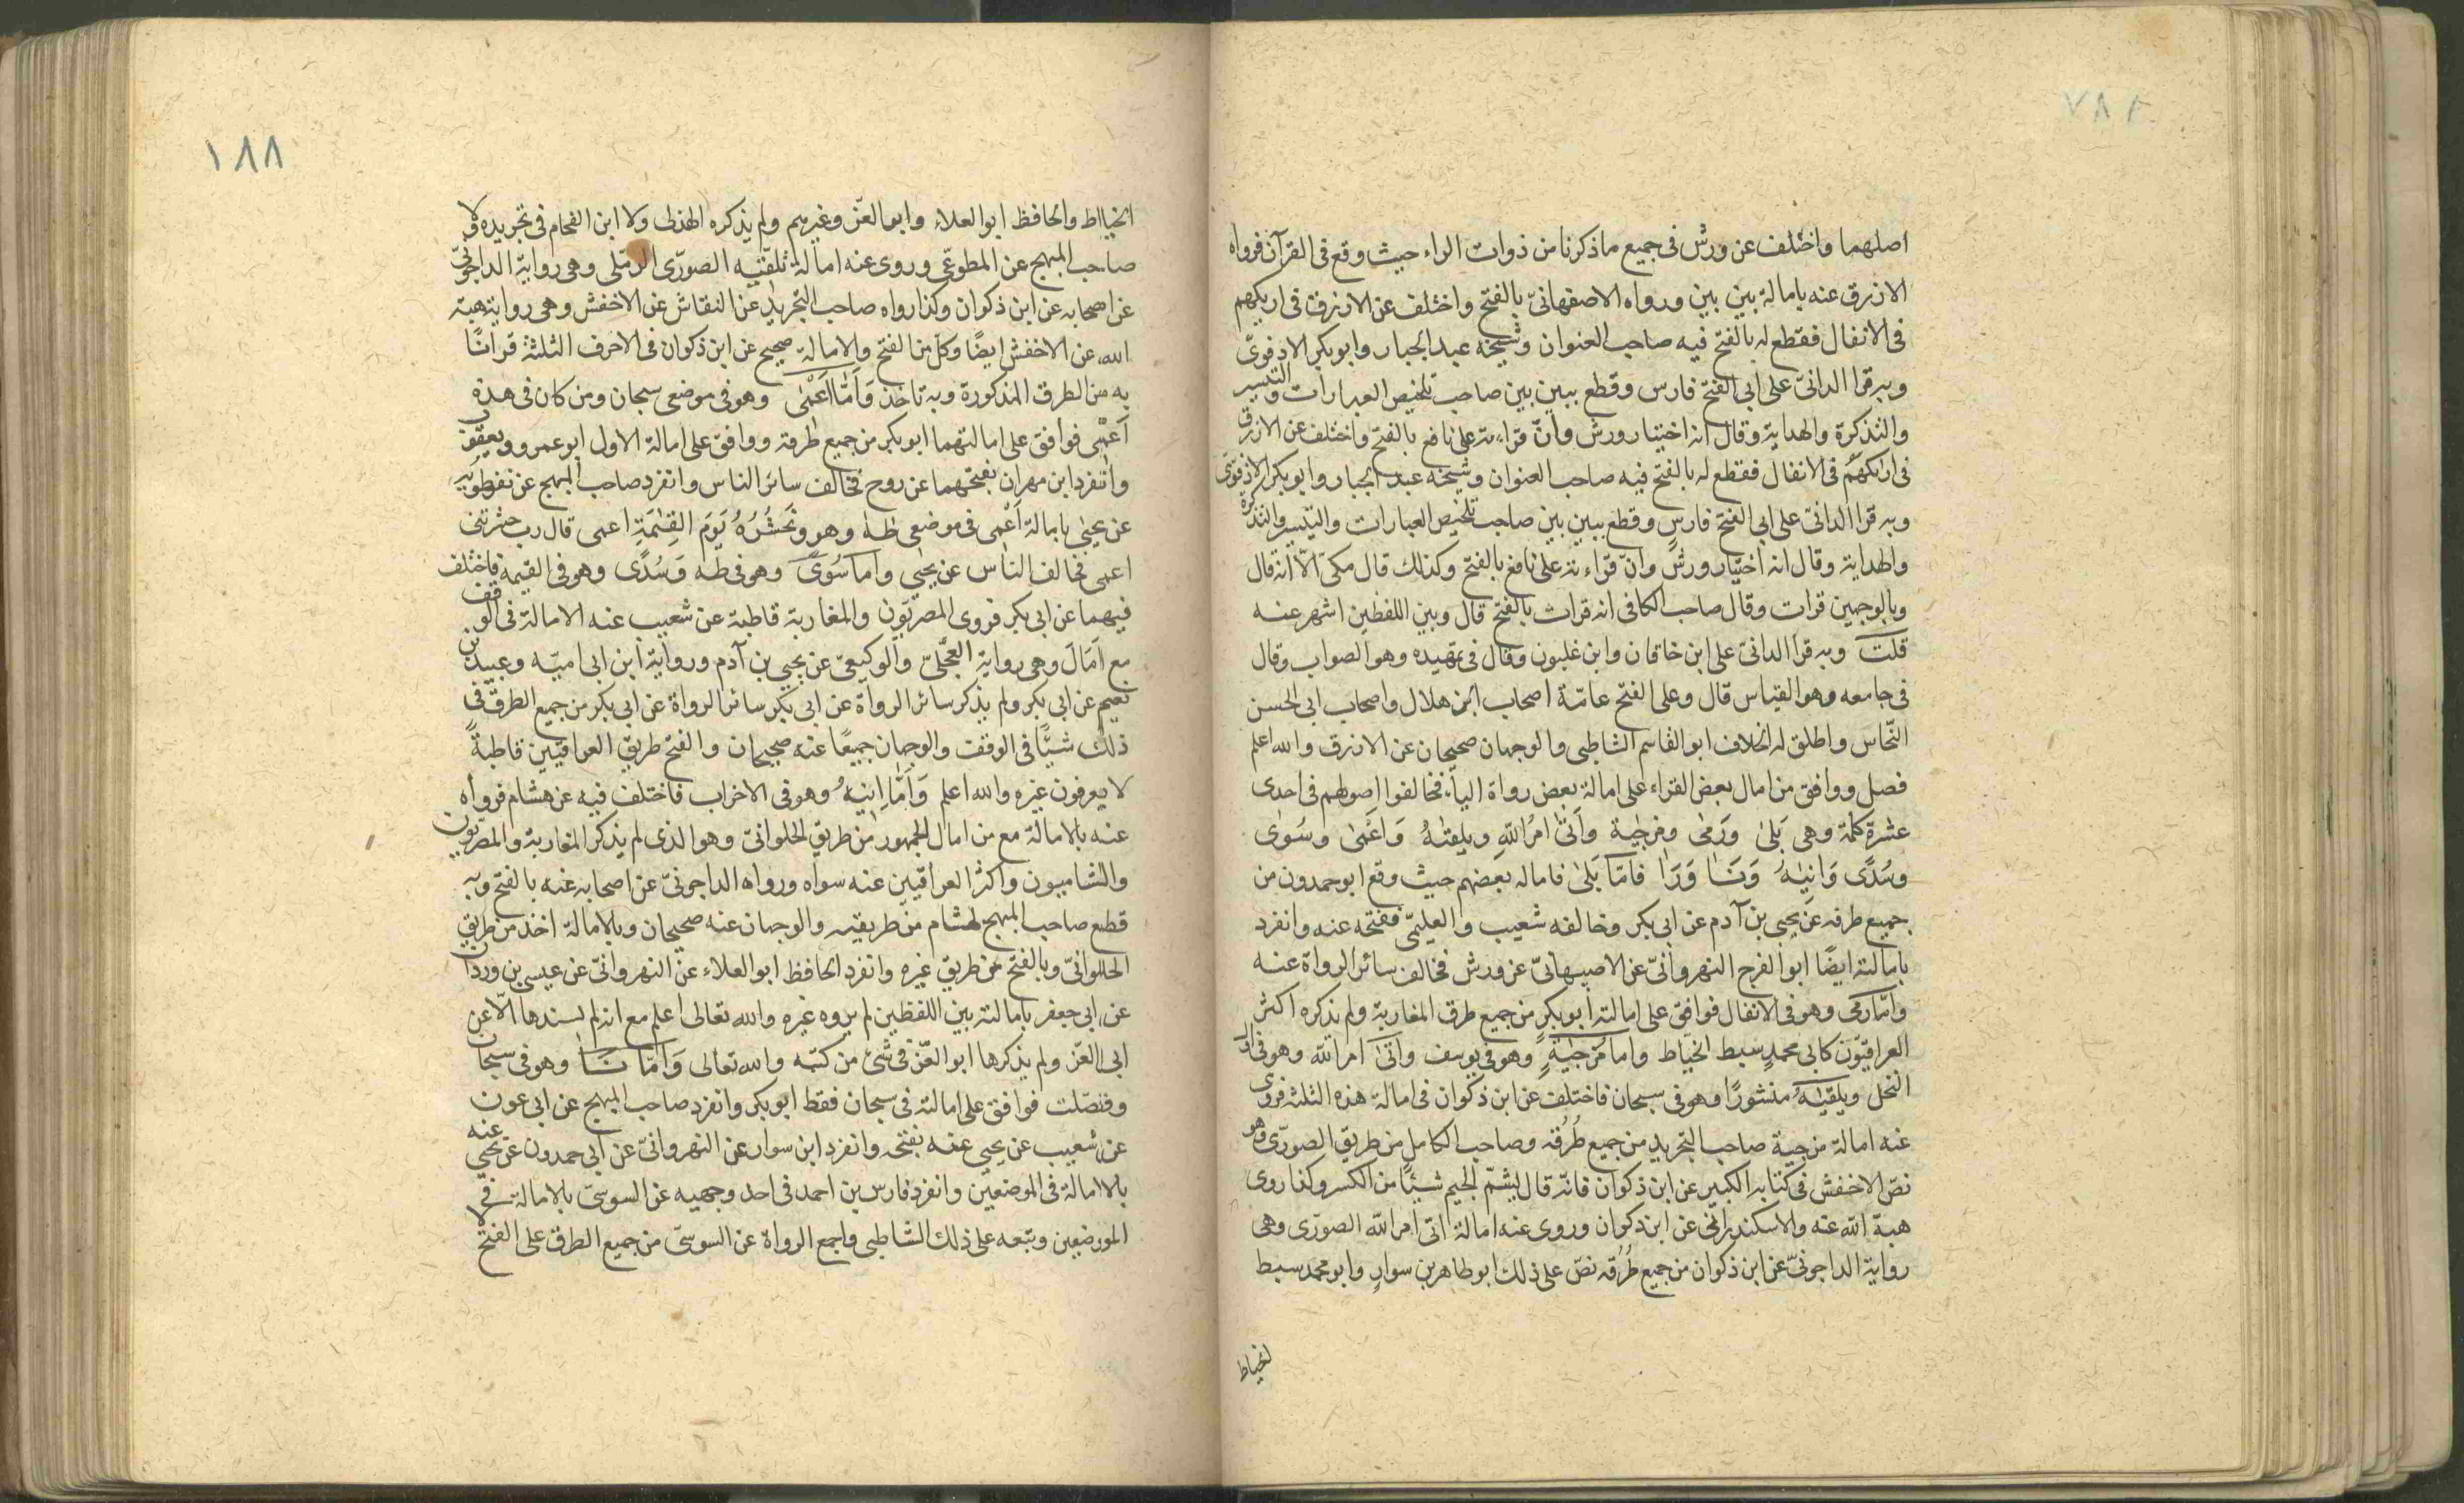 اصلهما واختلف عن ورش فى جميع ماذكرنا من ذوات الراء حيث وقع فى القرآن فرواه
الازرق عنه بامالة بين بين ورواه الاصفهانىّ بالفتح واختلف عن الازرق فى اريكهم
فى الانفال فقطع له بالفتح فيه صاحب العنوان وشيخه عبد الجبار وابو بكر الادفوىّ
وبه قرا الدانىّ على ابى الفتح فارس وقطع ببين بين صاحب تلخيص العبارات والتيسير
والتذكرة والهداية وقال انه اختيار ورش وانّ قراءته على نافع بالفتح واختلف عن الازرق
فى اراكهم فى الانفال فقطع له بالفتح فيه صاحب العنوان وشيخه عبد الجبار وابو بكر الاذفوىّ
وبه قرا الدانىّ على ابى الفتح فارس وقطع ببين بين صاحب تلخيص العبارات والتيسير والتذكرة
والهداية وقال انه اختيار ورش وانّ قراءته على نافع بالفتح وكذلك قال مكى الّا انه قال
وبالوجهين قرات وقال صاحب الكافى انه قرات بالفتح قال وبين اللفظين اشهر عنه
قلت وبه قرا الدانىّ على ابن خاقان وابن غلبون وقال فى تمهيده وهو الصواب وقال
فى جامعه وهو القياس قال وعلى الفتح عامّة اصحاب ابن هلال واصحاب ابى الحسن
النّحاس واطلق له الخلاف ابو القاسم الشاطبى والوجهان صحيحان عن الازرق والله اعلم
فصل ووافق من امال بعض القراء على امالة بعض رواة الياء فخالفوا اصولهم فى احدى
عشرة كلمة وهى بَلىٰ ورَمىٰ ومزجٰية وأتىٰ امرُ اللهِ ويلقٰىهُ وَاعَمىٰ وسُوٰى
وسُدًى وَانٰيهُ وَنَـَا وَرَا فامّا بَلىٰ فاماله بعضهم حيث وقع ابو حمدون من
جميع طرقه عن يحيى بن آدم عن ابى بكر وخالفه شعيب والعليمّى ففتحه عنه وانفرد
بامالته ايضًا ابو الفرج النهروانىّ عن الاصبهانىّ عن ورش فخالف سائر الرواة عنه
وامّا رمى وهو فى الانفال فوافق على امالته ابو بكرٍ من جميع طرق المغاربة ولم يذكره اكثر
العراقيّون كابى محمدٍ سبط الخيّاط واما مزجٰيةٍ وهو فى يوسف واتىٰ امر الله وهو فى اول
النحل ويلقٰيهُ منشورًا وهو فى سبحان فاختلف عن ابن ذكوان فى امالة هذه الثلثة فروى
عنه امالة مزجية صاحب التجريد من جميع طُرُقه وصاحب الكامل من طريق الصورّى وهو
نصّ الاخفش فى كتابه الكبير عن ابن ذكوان فانّه قال ليشمّ الجيم شيئًا من الكسر وكذا روى
هبة الله عنه والاسكندرانىّ عن ابن ذكوان وروى عنه امالة اتى امر الله الصورّى وهى
رواية الداجونىّ عن ابن ذكوان من جميع طُرُقه نصّ على ذلك ابو طاهر بن سوارٍ وابو محمد سبط
لخياط
١٨٨
الخيااط والحافظ ابوا لعلاء وابو العزّ وغيرهم ولم يذكره الهذلى ولا ابن الفحام فى تجريده ولا
صاحب المبهج عن المطوعّى وروى عنه امالة تلقّٰيه الصورّى الرملى وهى رواية الداجونىّ
عن اصحابه عن ابن ذكوان وكذا رواه صاحب التجريد عن النقاش عن الاخفش وهى رواية هبة
الله عن الاخفش ايضًا وكل من الفتح والامالة صحيح عن ابن ذكوان فى الاحرف الثلثة قراناً
به من الطرق المذكورة وبه تاخذ وَأمَّا اَعَمْى وهو فى موضعى سبحان ومن كان فى هذه
أعَمْى فوافق على امالتهما ابو بكر من جميع طرقه ووافق على امالة الاول ابو عمرو ويعقوب
وانفرد ابن مهران بفتحهما عن روح فخالف سائر الناس وانفرد صاحب المبهج عن نفطويه
عن يحيىٰ بامالة اَعْمى فى موضعى طٰهٰ وهو ونَحشُرُهُ يَوَم القِيٰمَةِ اعمى قال رب حشرتنى
اعمى فخالف الناس عن يحيى واما سُوىً وهو فى طه وَسُدًى وهو فى القيمة فاختلف
فيهما عن ابى بكر فروى المصريّون والمغاربة قاطبة عن شعيب عنه الامالة فى الوقف
مع اَمَالَ وهى رواية العجلىّ والوكيعىّ عن يحيى بن آدم ورواية ابن ابى اميّه وعبيد بن
نعيم عن ابى بكر ولم يذكر سائر الرواة عن ابى بكر سائر الرواة عن ابى بكر من جميع الطرق فى
ذلك شيئًا فى الوقف والوجهان جميعًا عنه صحيحان والفتح طريق العراقيين قاطبةً
لا يعرفون غيره والله اعلم وَأمَّا اِنٰيهُ وهو فى الاخراب فاختلف فيه عن هشام فرواه
عنه بالامالة مع من امال الجمهور من طريق الحلوانىّ وهو الذى لم يذكر المغاربة والمصريّون
والشاميون واكثر العراقيّين عنه سواه ورواه الداجونىّ عن اصحابه عنه بالفتح وبه
قطع صاحب المبهج لهشام من طريقيه والوجهان عنه صحيحان وبالامالة اخذ من طريق
الحالوانىّ وبالفتح من طريق غيره وانفرد الحافظ ابو العلاء عن النهروانىّ عن عيسى بن وردان
عن ابى جعفر بامالته بين اللفظين لم يروه غيره والله تعالى اعلم مع انه لم يسندها الّا عن
ابى العزّ ولم يذكرها ابو العّز فى شئ من كتبه والله تعالى وَامّا نَـَا وهو فى سبحان
وفصّلت فوافق على امالته فى سبحان فقط ابو بكر وانفرد صاحب المبهج عن ابى عون
عن شعيب عن يحيى عنه بفتحه وانفرد ابن سوار عن النهروانىّ عن ابى حمدون عن يحيى عنه
بالاامالة فى الموضعين وانفرد فارس بن احمد فى احد وجهيه عن السوسىّ بالامالة فى
المورضعين وتبعه على ذلك الشّاطبى واجمع الرواة عن السوسىّ من جميع الطرق على الفتح